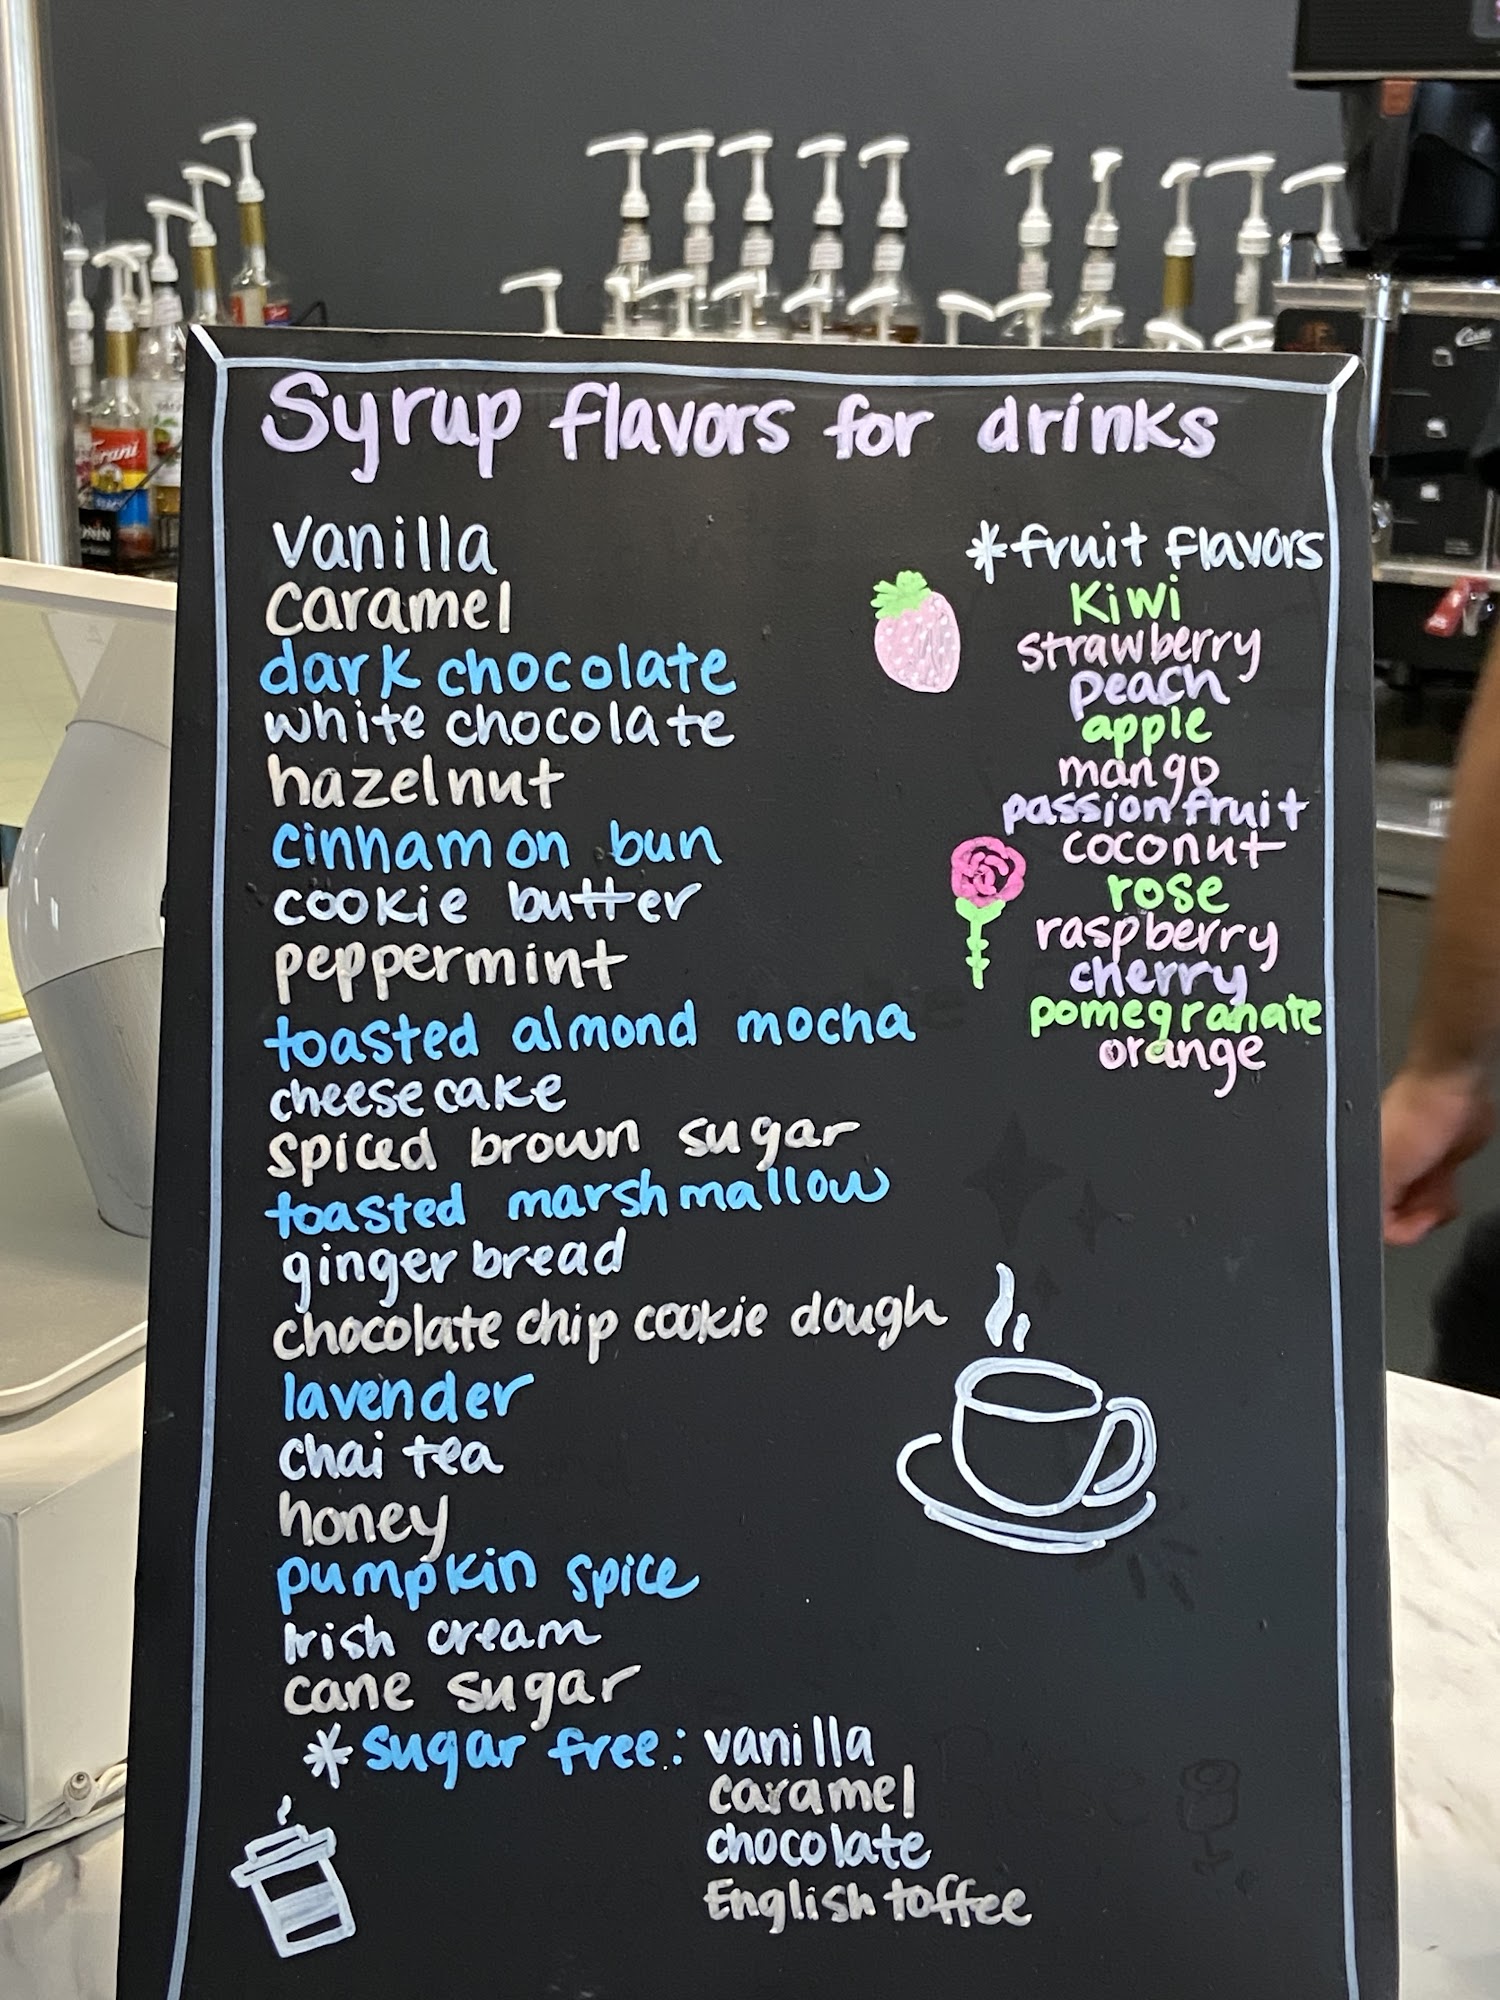 Syrup flavors for drinks
vanilla
caramel
dark chocolate
white chocolate
hazelnut
cinnamon bun
cookie butter
peppermint
toasted almond mocha
cheesecake
spiced brown sugar
toasted marshmallow
gingerbread
chocolate chip cookie dough
lavender
chai tea
honey
pumpkin spice
Irish cream
cane sugar
*sugar free: vanilla
caramel
chocolate
English toffee
*fruit flavors
Kiwi
strawberry
peach
apple
mango
passion fruit
coconut
rose
raspberry
cherry
pomegranate
orange
Torani